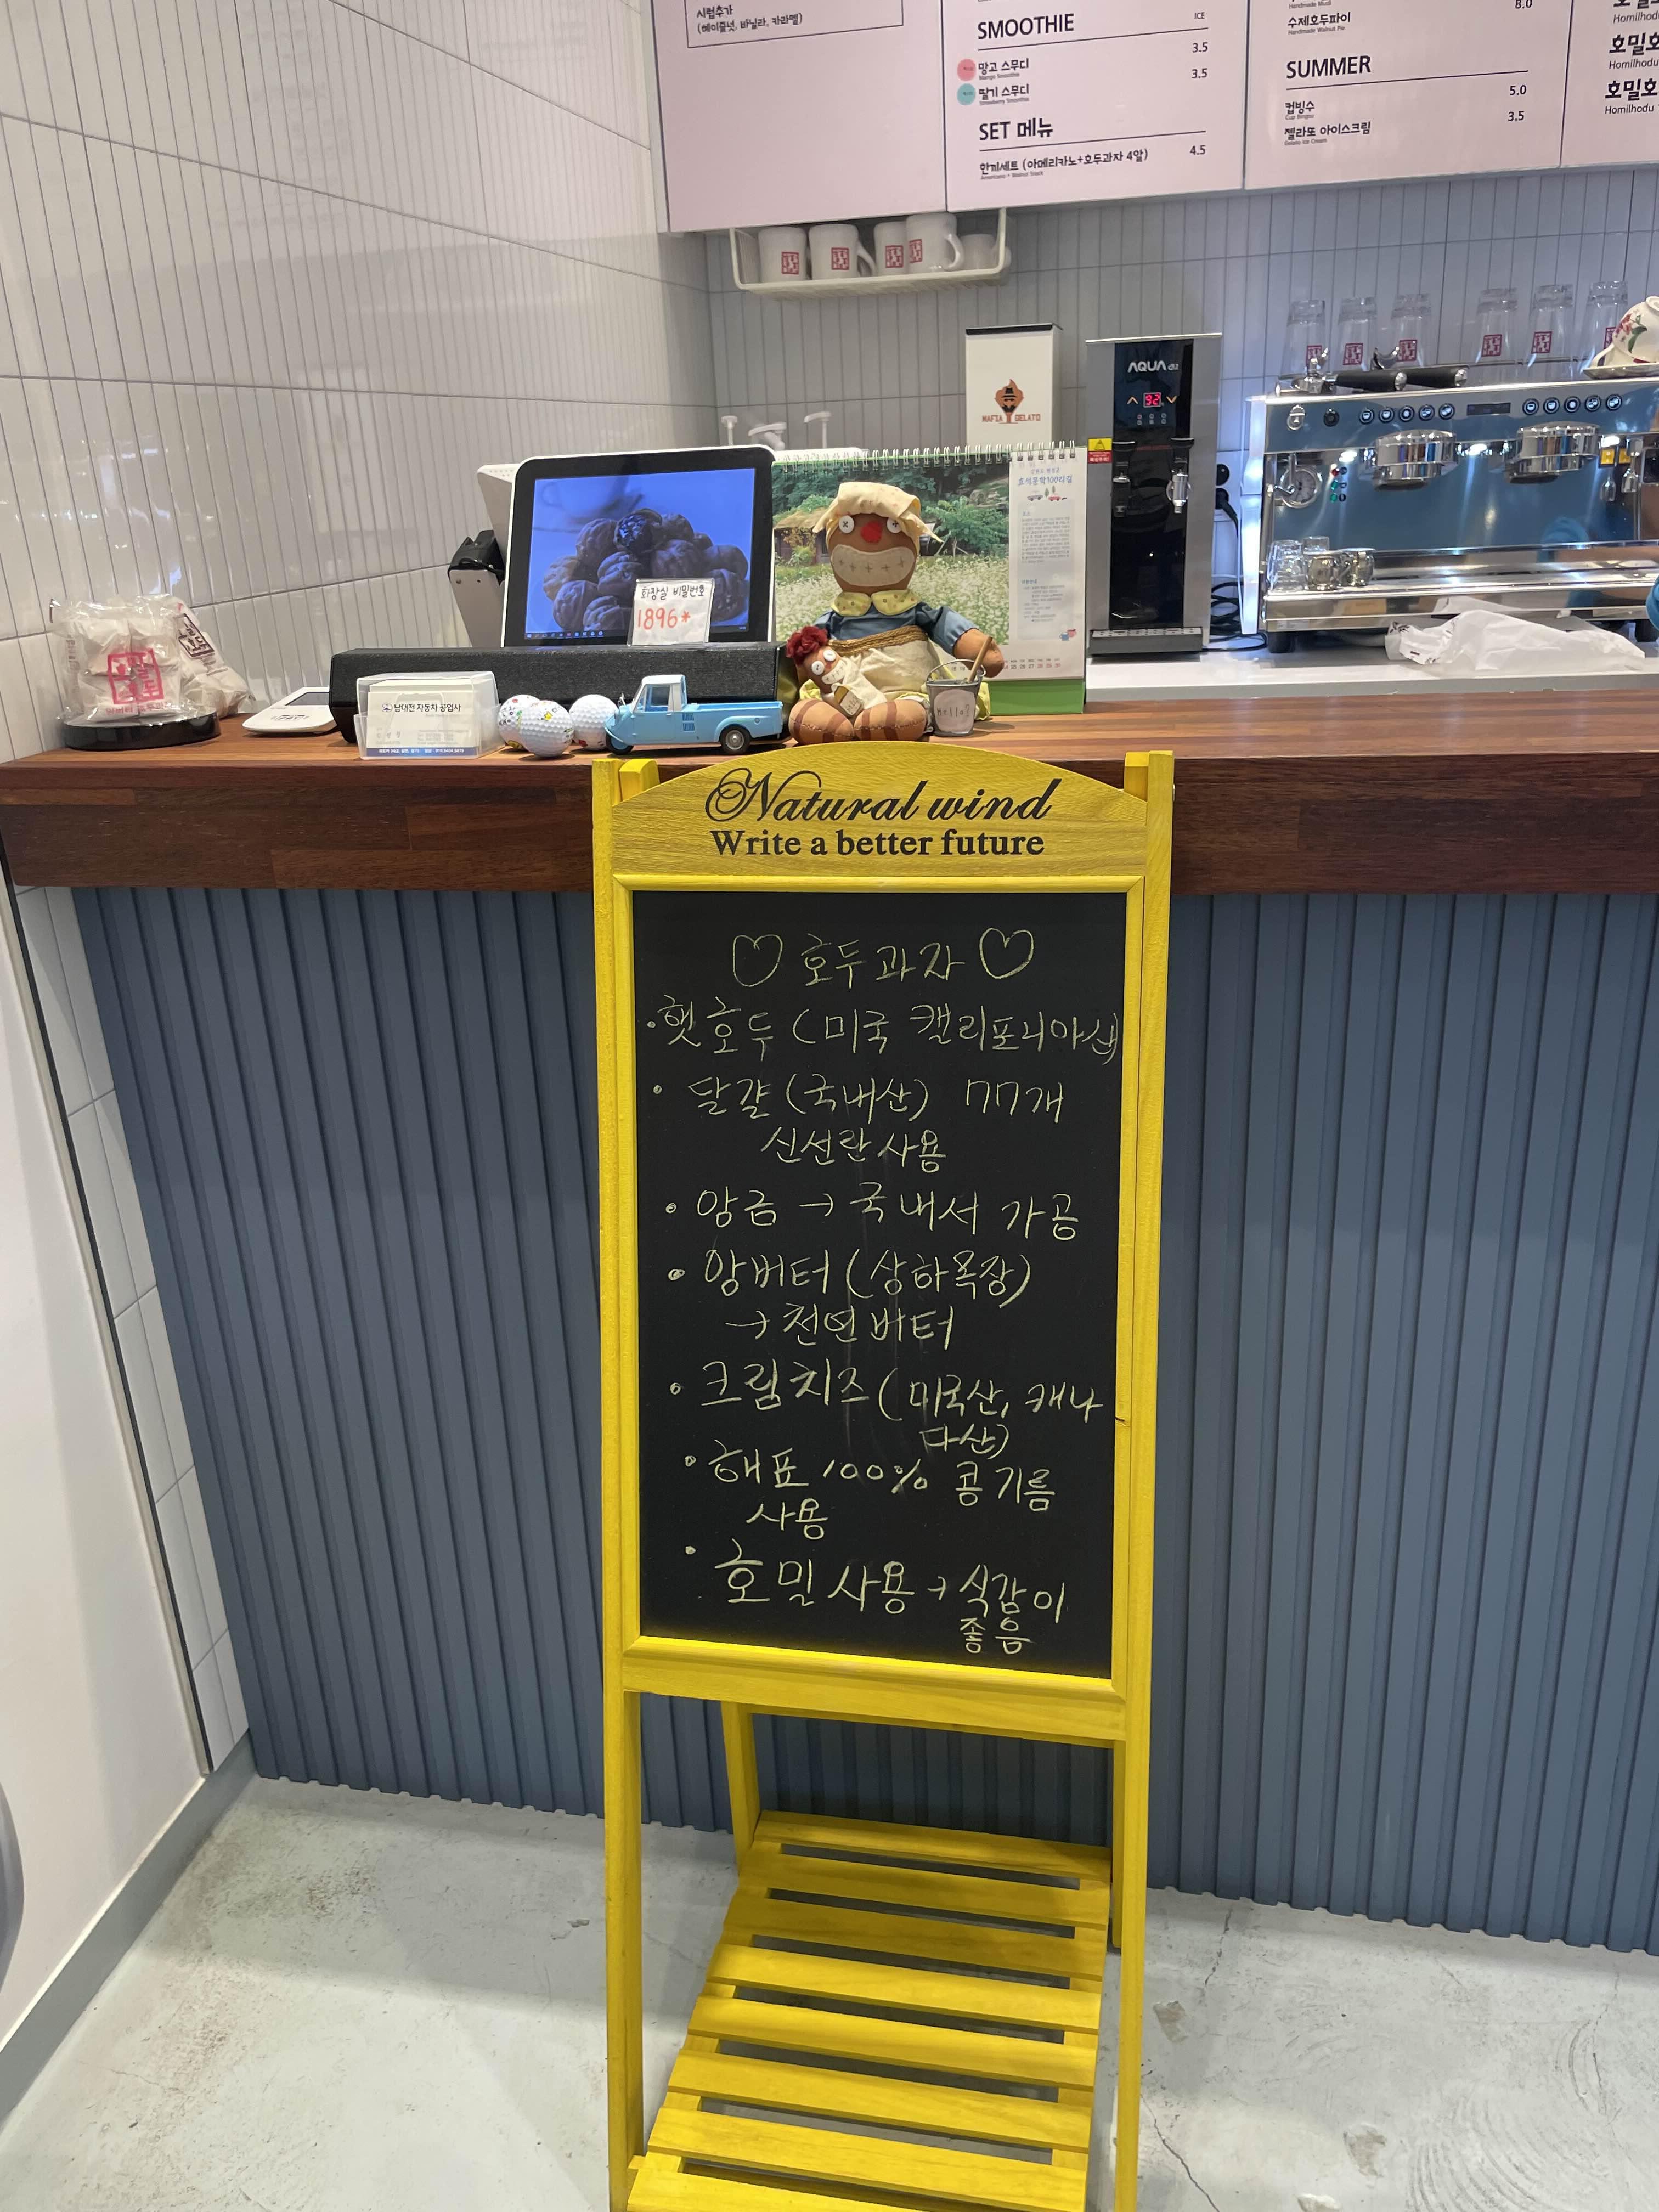 시럽추가
(헤이즐넛, 바닐라, 카라멜)
SMOOTHIE
ICE
망고 스무디 3.5
Mango Smoothie
딸기 스무디 3.5
Strawberry Smoothie
SET 메뉴
한끼세트 (아메리카노+호두과자 4알) 4.5
Americano + Walnut Snack
Handmade Muill
8.0
수제호두파이
Handmade Walnut Pie
SUMMER
컵빙수 5.0
Cup Bingsu
젤라또 아이스크림 3.5
Gelato Ice Cream
Homilhodu
호밀호
Homilhodu
호밀호
Homilhodu
MAFIA GELATO
AQUA
92
효석문학100리길
화장실 비밀번호
1896*
남대전 자동차 공업사
Hello?
Natural wind
Write a better future
♡ 호두과자 ♡
· 햇호두 (미국 캘리포니아산)
· 달걀 (국내산) 77개
신선란 사용
· 앙금 → 국내서 가공
· 앙버터 (상하목장)
→ 천연버터
· 크림치즈 (미국산, 캐나
다산)
· 해표 100% 콩기름
사용
· 호밀 사용 → 식감이
좋음